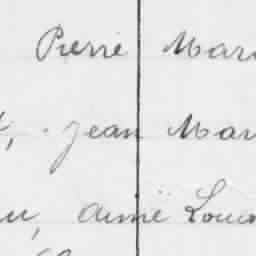 Pierre Mar
, Jean Mar
, Aimé Louis